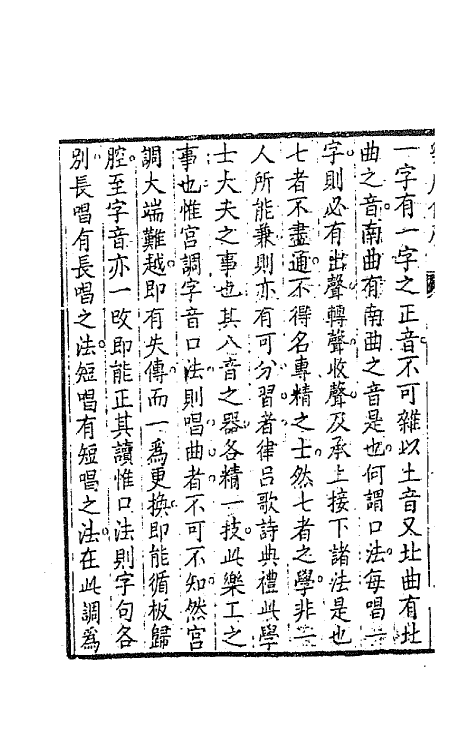 一字有一字之正音不可雜以土音又北曲有北
曲之音南曲有南曲之音是也何謂口法每唱一
字則必有出聲轉聲收聲及承上接下諸法是也
七者不盡通不得名專精之士然七者之學非一
人所能兼則亦有可分習者律呂歌詩典禮此學
士大夫之事也其八音之器各精一技此樂工之
事也惟宮調字音口法則唱曲者不可不知然宮
調大端難越即有失傳而一爲更換即能循板歸
腔至字音亦一攺即能正其讀惟口法則字句各
別長唱有長唱之法短唱有短唱之法在此調爲